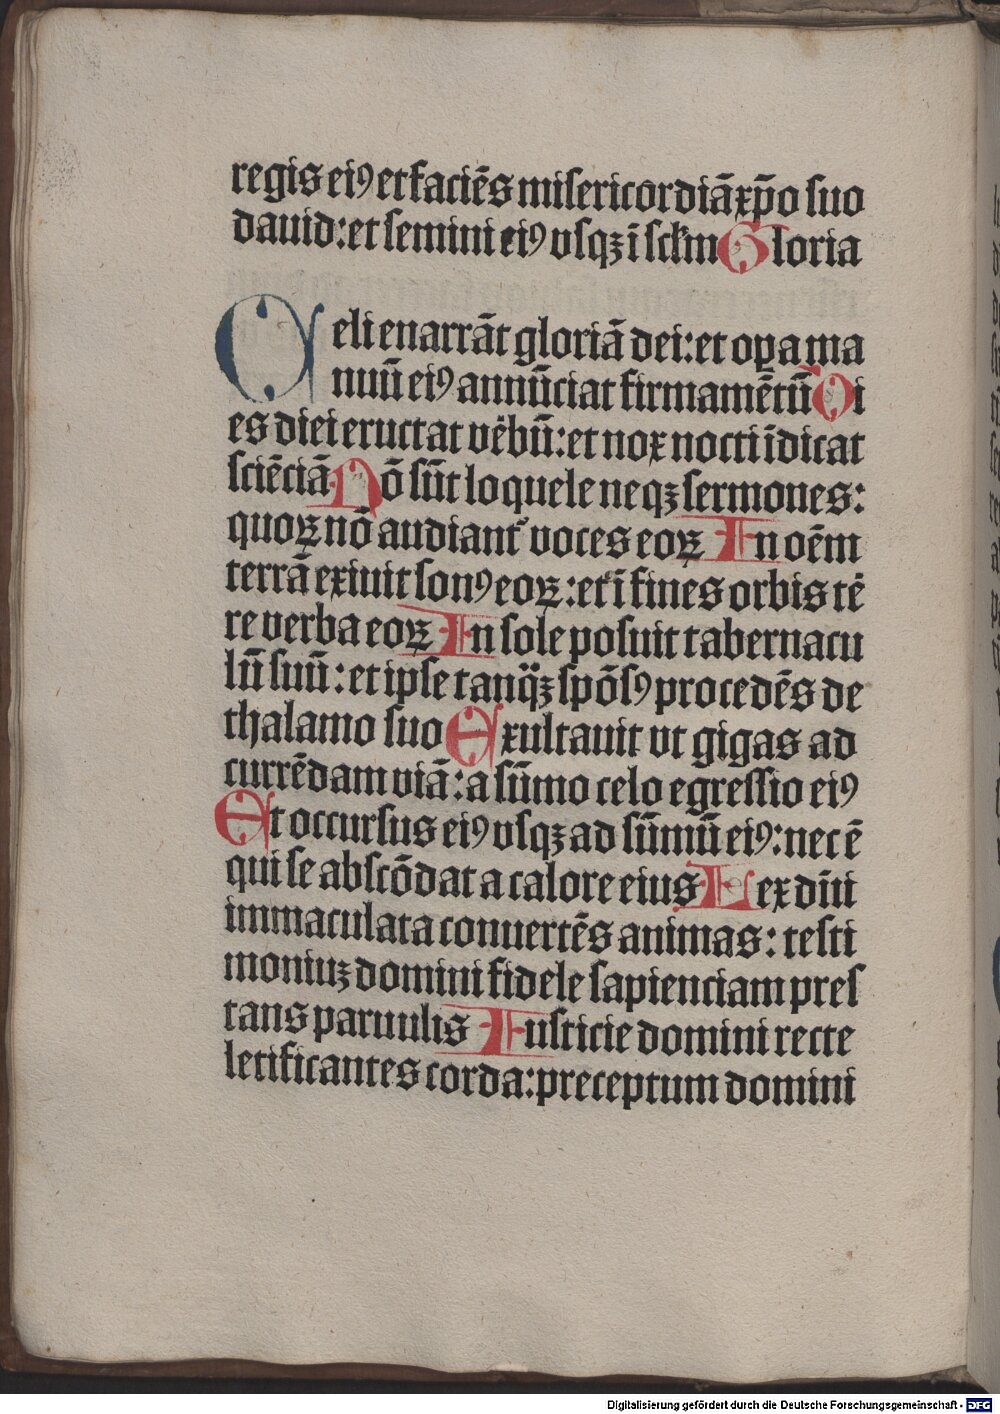 regis eiꝰ et faciēs misericordiā xp̄o suo
dauid: et semini eiꝰ vsqꝫ ī sclm̄ Gloria
Celi enarrāt gloriā dei: et oꝑa ma
nuū eiꝰ annūciat firmamētū Di
es diei eructat vēbū: et nox nocti īdicat
sciēciā Nō sūt loquele neqꝫ sermones:
quoꝝ nō audiant᷑ voces eoꝝ In oēm
terrā exiuit sonꝰ eoꝝ: et ī fines orbis tē
re verba eoꝝ In sole posuit tabernacu
lū suū: et ipse tanq̄ꝫ spōsꝰ procedēs de
thalamo suo Exultauit vt gigas ad
currēdam viā: a sūmo celo egressio eiꝰ
Et occursus eiꝰ vsqꝫ ad sūmū eiꝰ: nec ē
qui se abscōdat a calore eius Lex dn̄i
immaculata conuertēs animas: testi
moniuꝫ domini fidele sapienciam pres
tans paruulis Iusticie domini recte
letificantes corda: preceptum domini
Digitalisierung gefördert durch die Deutsche Forschungsgemeinschaft - DFG